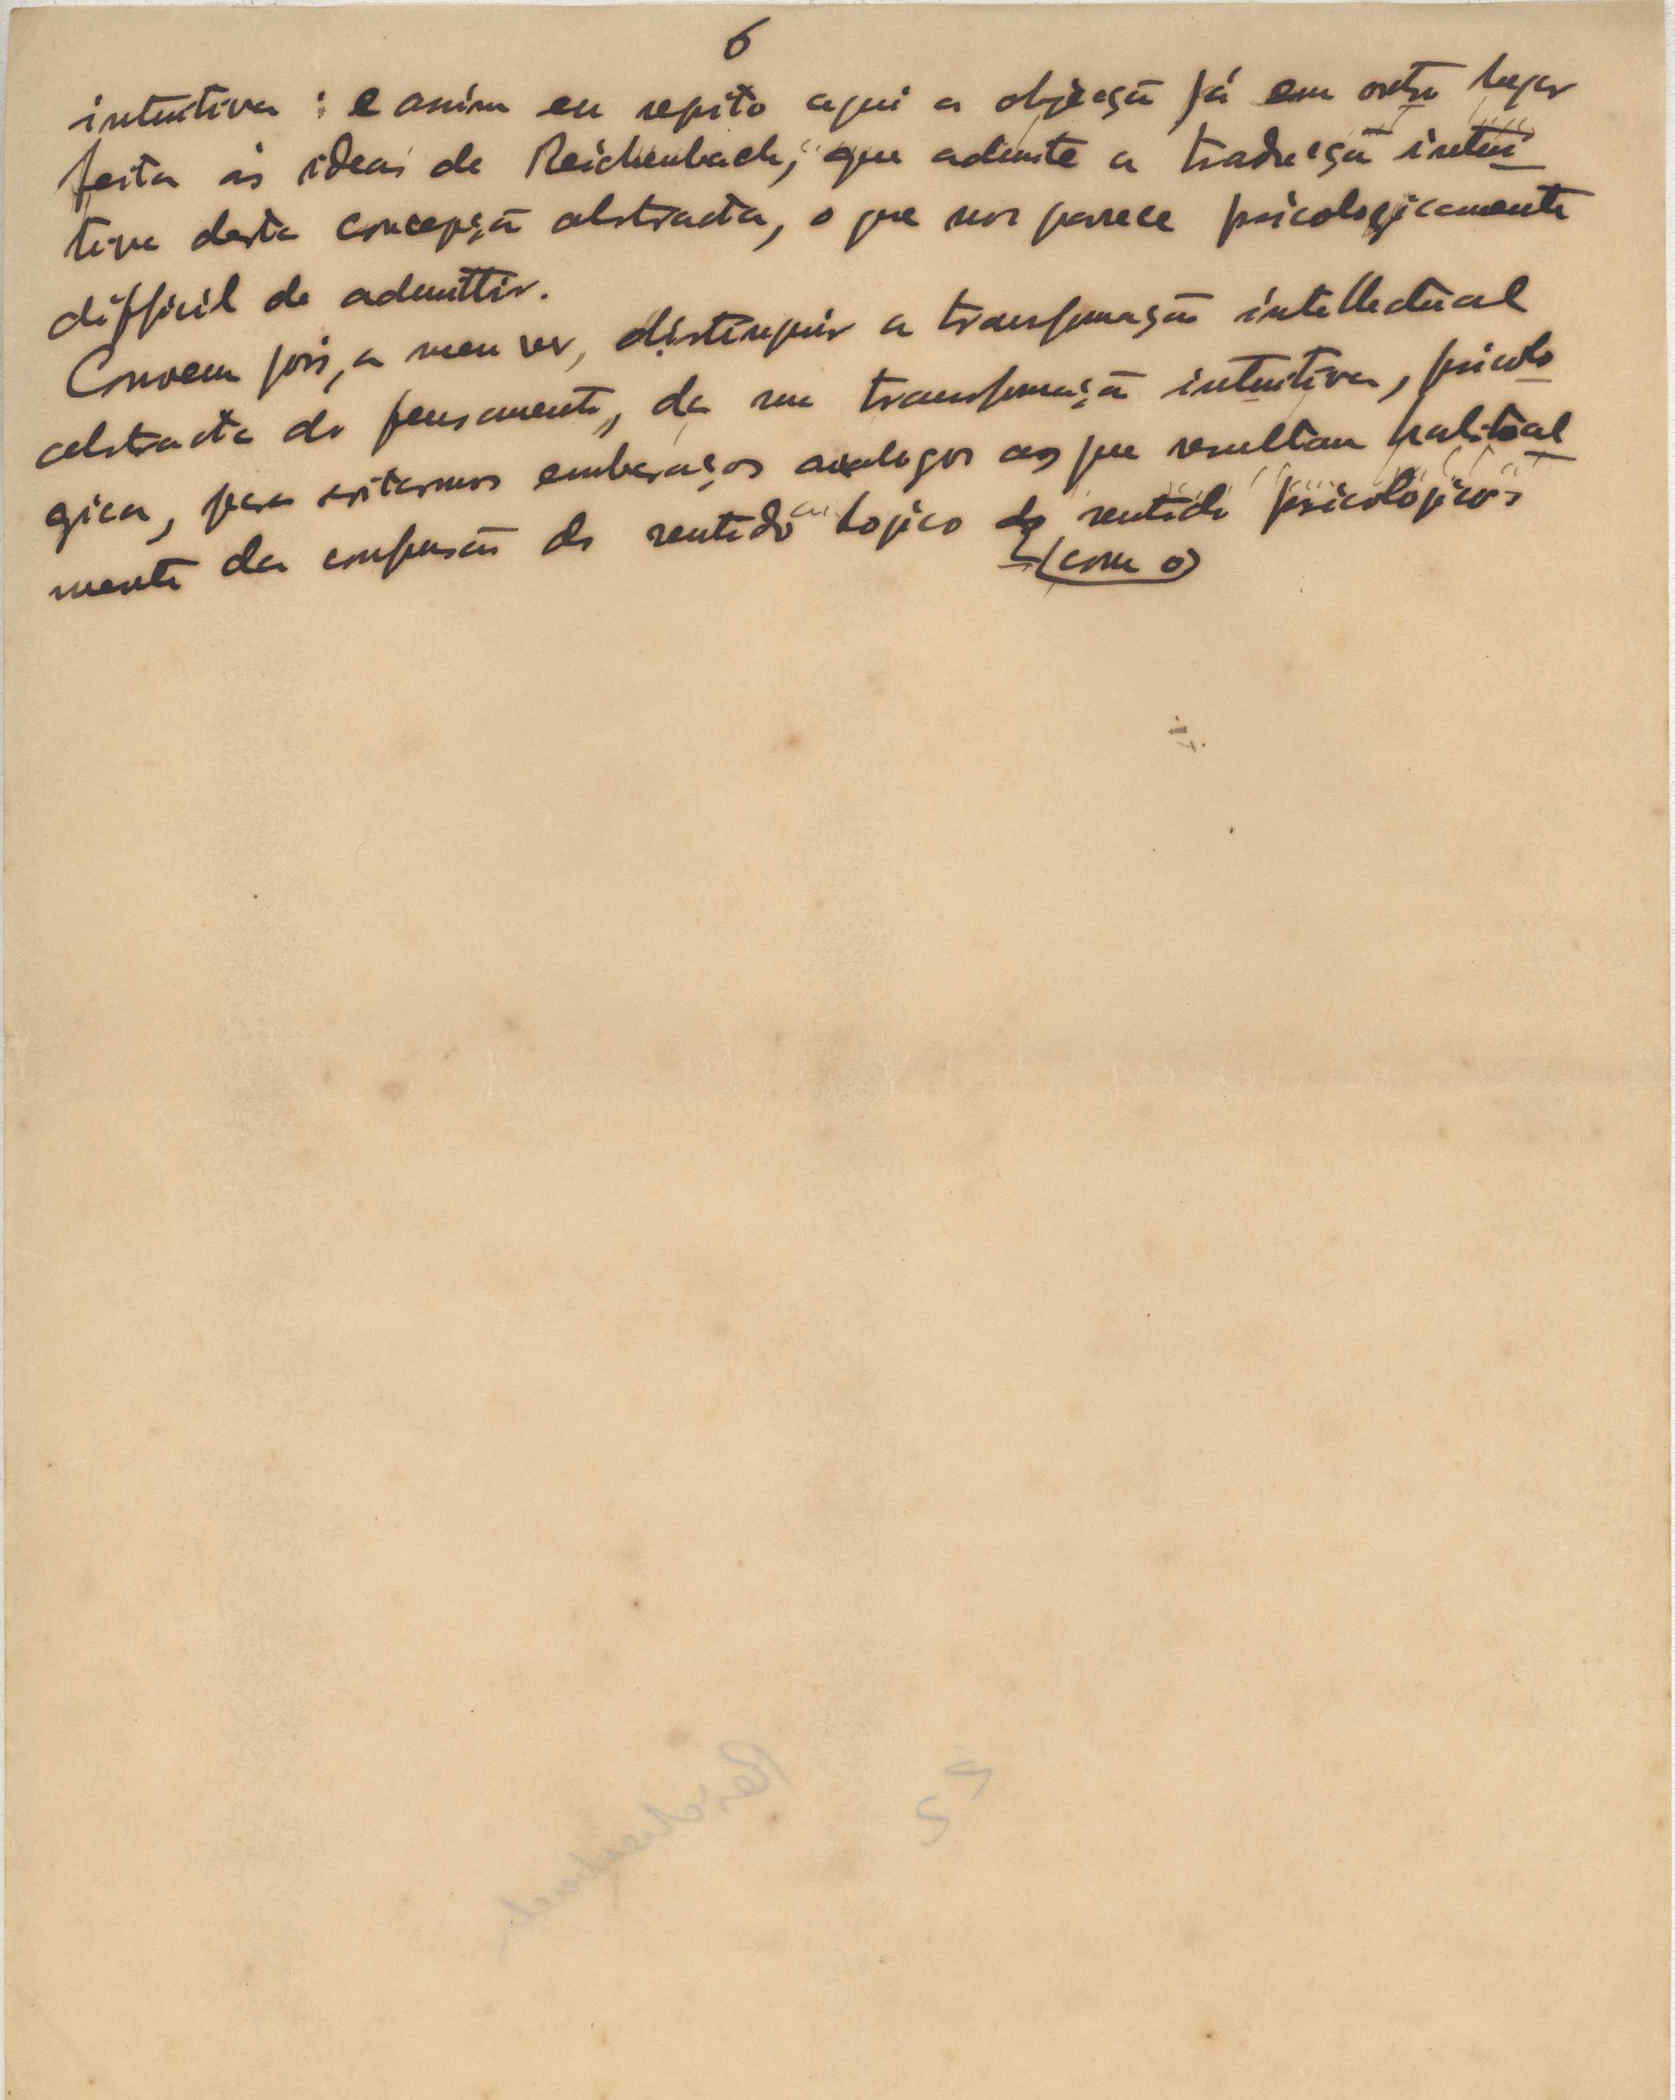 6
intuitiva : e assim eu repito aqui a objecção já em outro lugar
feita ás ideas de Reichenbach, que admitte a traducção intui
tiva desta concepção abstracta, o que nos parece psicologicamente
difficil de admittir.
Convem pois, a meu ver, distinguir a transformação intellectual
abstracta do pensamento, da sua transformação intuitiva, psicolo
gica, para evitarmos embaraços analogos aos que resultam habitual
mente da confusão do sentido logico do sentido psicologico
(com o)
Reichenbach